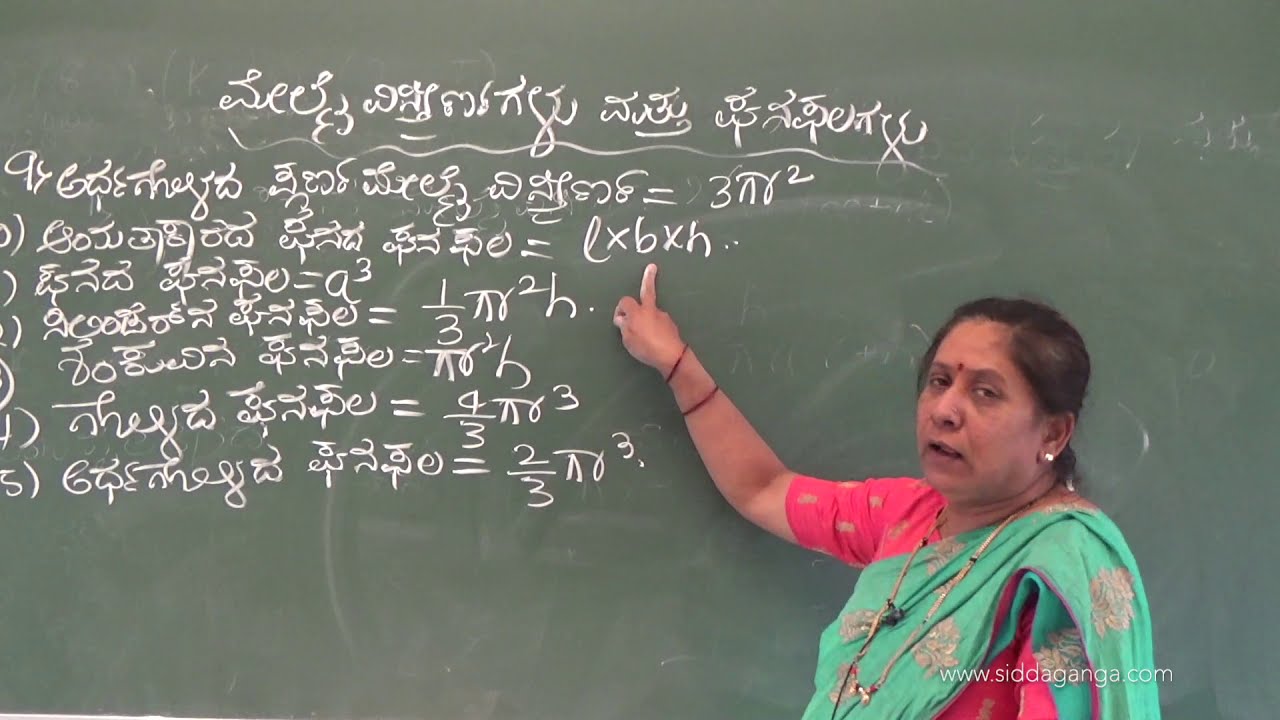 ಮೇಲ್ಮೈ ವಿಸ್ತೀರ್ಣಗಳು ಮತ್ತು ಘನಫಲಗಳು
9) ಅರ್ಧಗೋಳದ ಪೂರ್ಣ ಮೇಲ್ಮೈ ವಿಸ್ತೀರ್ಣ = 3πr²
0) ಆಯತಾಕಾರದ ಘನದ ಘನಫಲ = l×b×h..
) ಘನದ ಘನಫಲ = a³
2) ಸಿಲಿಂಡರ್‌ನ ಘನಫಲ = 1/3 πr²h.
3) ಶಂಕುವಿನ ಘನಫಲ = πr²h
4) ಗೋಳದ ಘನಫಲ = 4/3 πr³
5) ಅರ್ಧಗೋಳದ ಘನಫಲ = 2/3 πr³.
www.siddaganga.com